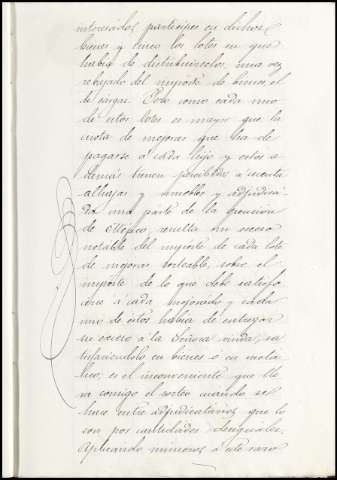 interesados partícipes en dichos
bienes y cinco los lotes en que
había de distribuírselos, una vez
rebajado del importe de bienes, el
de cargas. Pero como cada uno
de estos lotes es mayor que la
cuota de mejoras que ha de
pagarse a cada hijo y estos a-
demás tienen percibidas a cuenta
alhajas y muebles y adjudica-
da una parte de la
de Mejico, resulta un exceso
notable del importe de cada lote
de mejoras sorteable, sobre el
importe de lo que debe satisfa
cerse a cada mejorado y cada
uno de estos había de entregar
su exceso a la Señora viuda, sa
tisfaciéndolo en bienes o en metá
lico; es el inconveniente que lle
va consigo el sorteo cuando se
hace entre adjudicatarios que lo
son por cantidades desiguales.
Aplicando números a este caso